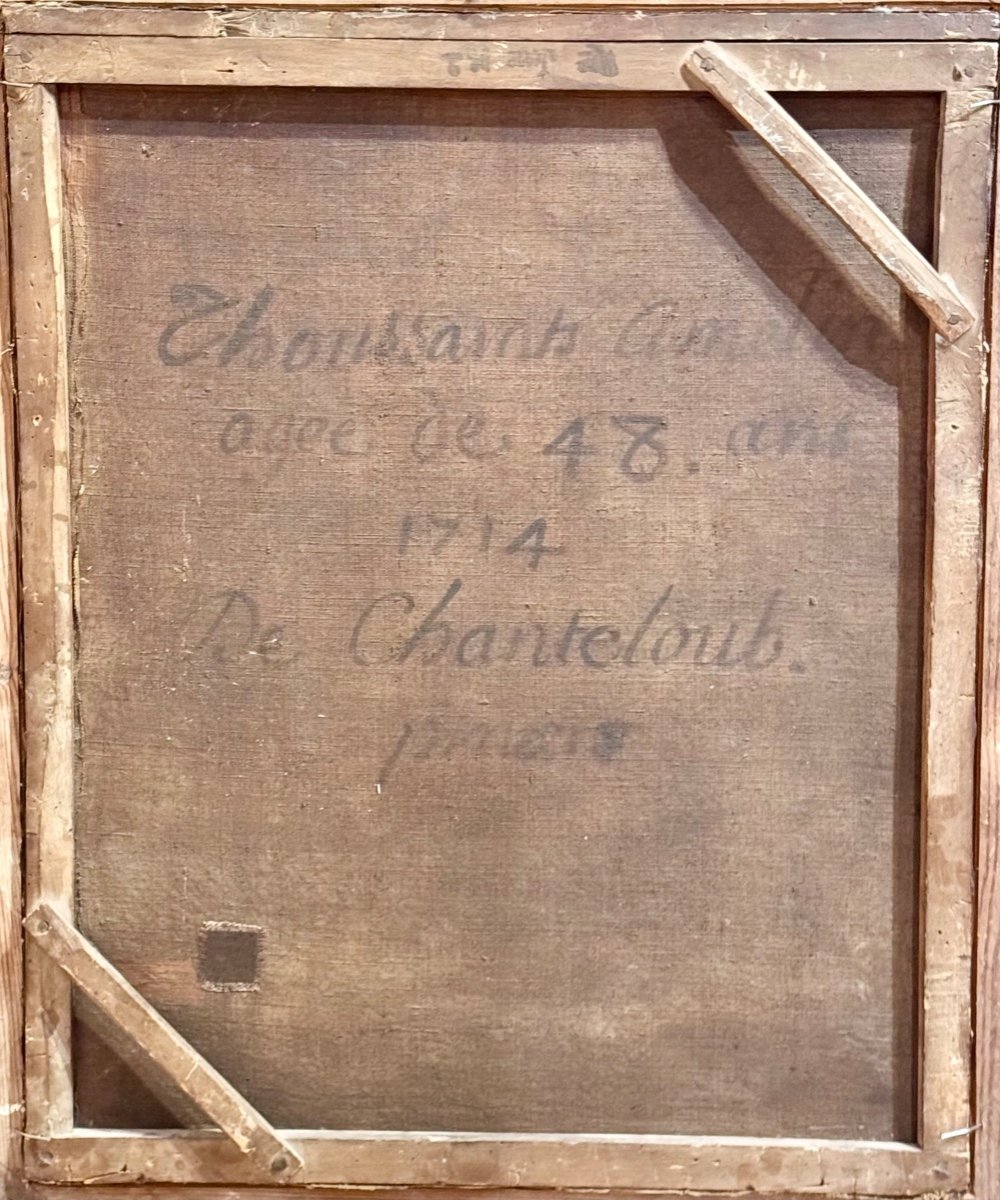 Thoussaints
agee de 48. ans
1714
De Chanteloub.